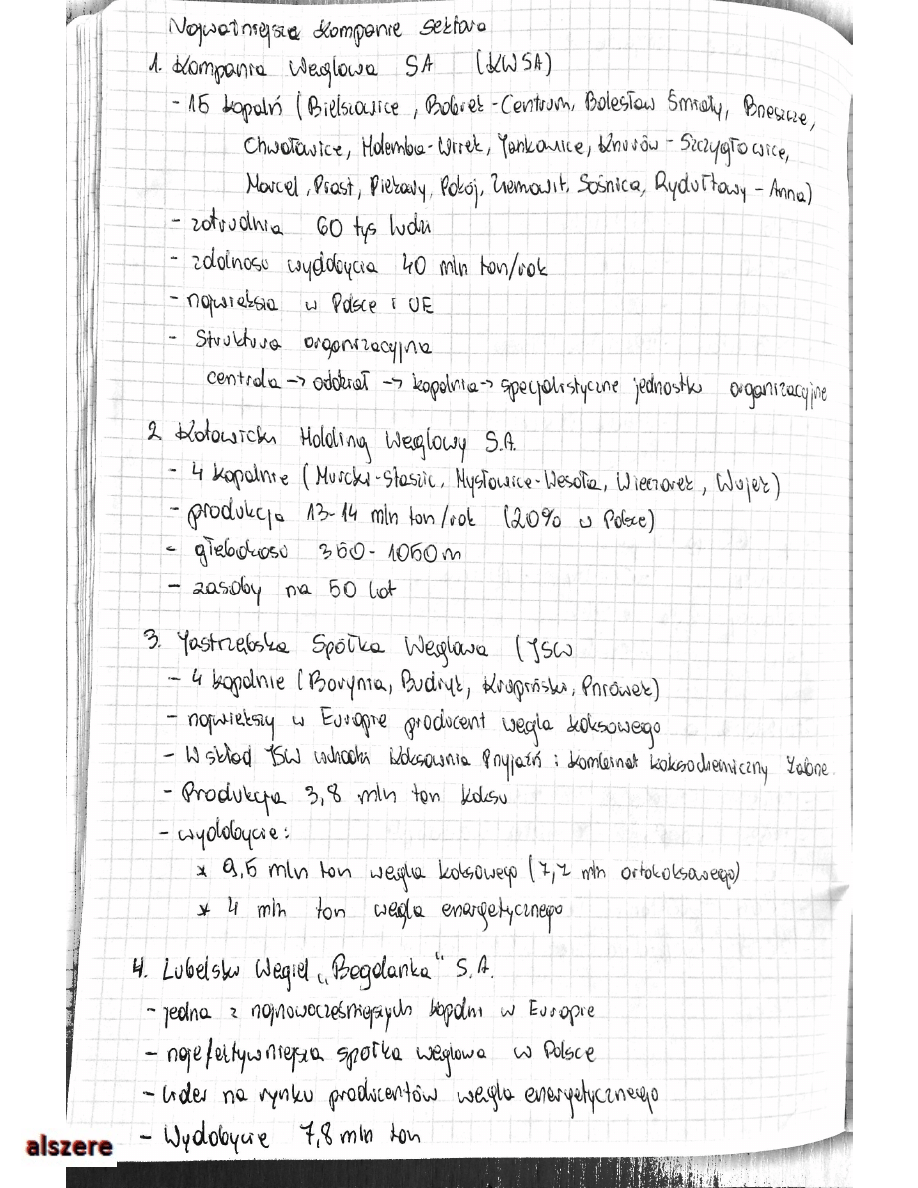 Najważniejsze kompanie sektora
1. Kompania Węglowa SA (KWSA)
- 15 kopalń (Bielszowice, Bobrek-Centrum, Bolesław Śmiały, Brzeszcze,
Chwałowice, Halemba-Wirek, Jankowice, Knurów-Szczygłowice,
Marcel, Piast, Piekary, Pokój, Ziemowit, Sośnica, Rydułtowy-Anna)
- zatrudnia 60 tys ludzi
- zdolność wydobycia 40 mln ton/rok
- największa w Polsce i UE
- Struktura organizacyjna
centrala → oddział → kopalnia → specjalistyczne jednostki organizacyjne
2. Katowicki Holding Węglowy S.A.
- 4 kopalnie (Murcki-Staszic, Mysłowice-Wesoła, Wieczorek, Wujek)
- produkcja 13-14 mln ton/rok (20% w Polsce)
- głębokość 350-1050m
- zasoby na 50 lat
3. Jastrzębska Spółka Węglowa (JSW
- 4 kopalnie (Borynia, Budryk, Krupiński, Pniówek)
- największy w Europie producent węgla koksowego
- W skład JSW wchodzi Koksownia Przyjaźń i kombinat koksochemiczny Zabrze
- Produkcja 3,8 mln ton koksu
- wydobycie:
* 9,5 mln ton węgla koksowego (7,7 mln ortokoksowego)
* 4 mln ton węgla energetycznego
4. Lubelski Węgiel „Bogdanka" S.A.
- jedna z najnowocześniejszych kopalni w Europie
- najefektywniejsza spółka węglowa w Polsce
- Lider na rynku producentów węgla energetycznego
- Wydobycie 7,8 mln ton
alszere